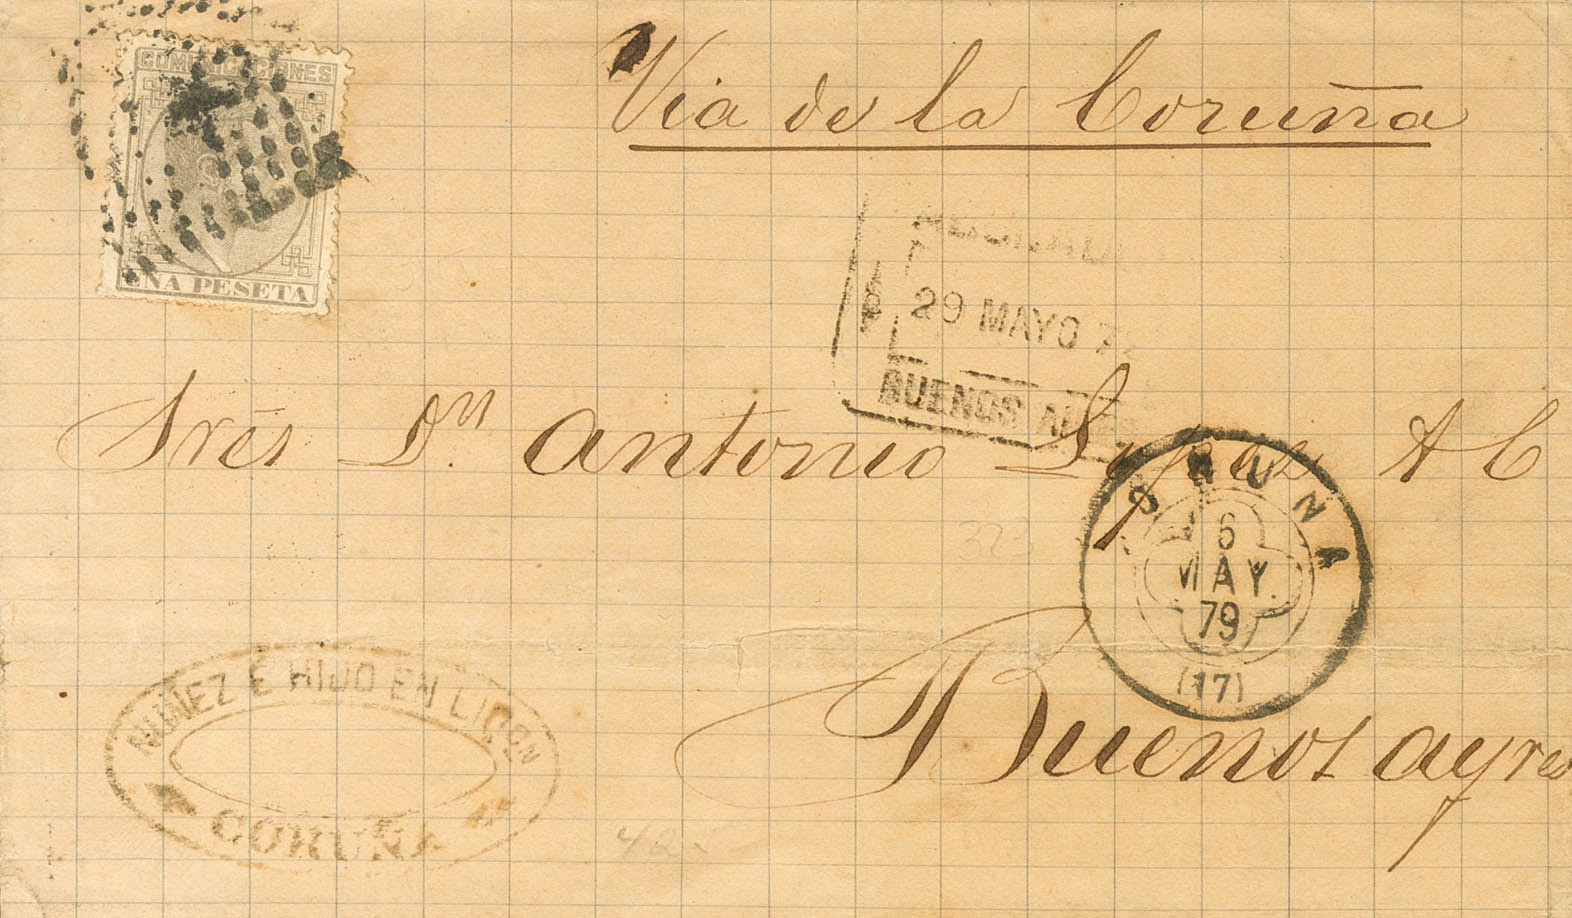 COMUNICACIONES
UNA PESETA
Via de la Coruña
29 MAYO 7
BUENOS AIRES
Srēs Dn. Antonio Lopez A C
ORUÑA
6
MAY.
79
(17)
Buenos ayres
NUÑEZ É HIJO EN LIQON
CORUÑA